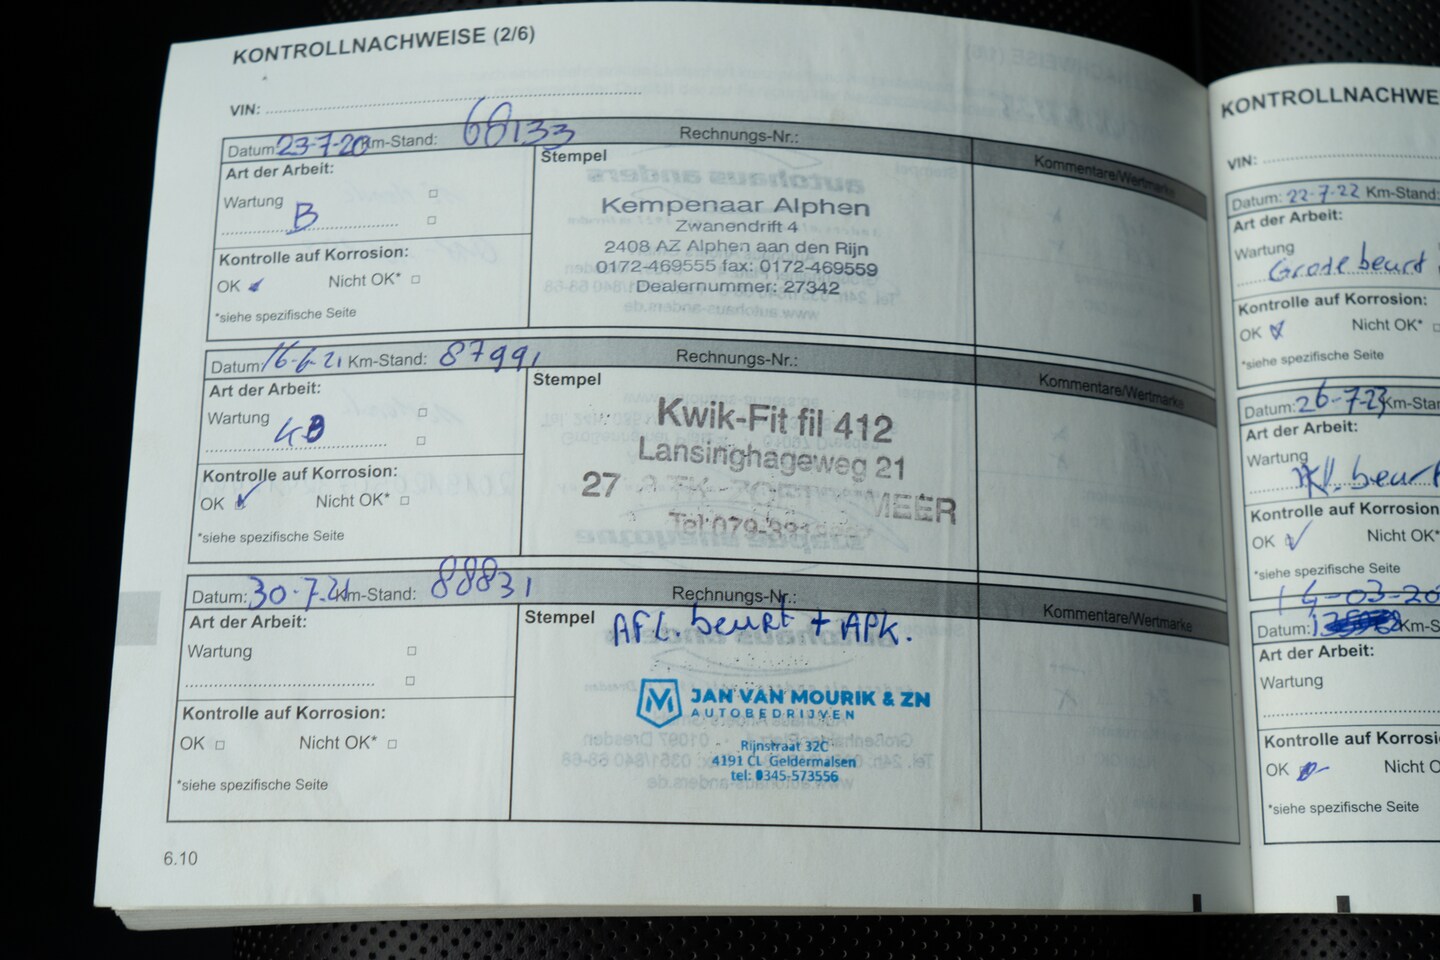 KONTROLLNACHWEISE (2/6)
VIN:
Datum: 23-7-20 Km-Stand: 68133 Rechnungs-Nr.:
Kommentare/Wertmarke
Art der Arbeit:
Wartung
B
Kontrolle auf Korrosion:
OK Nicht OK*
*siehe spezifische Seite
Stempel
Kempenaar Alphen
Zwanendrift 4
2408 AZ Alphen aan den Rijn
0172-469555 fax: 0172-469559
Dealernummer: 27342
Datum: 16-6-21 Km-Stand: 87991 Rechnungs-Nr.:
Kommentare/Wertmarke
Art der Arbeit:
Wartung
Kontrolle auf Korrosion:
OK Nicht OK*
*siehe spezifische Seite
Stempel
Kwik-Fit fil 412
Lansinghageweg 21
27
Tel:079-331
Datum: 30-7-21 Km-Stand: 88831 Rechnungs-Nr.:
Kommentare/Wertmarke
Art der Arbeit:
Wartung
Kontrolle auf Korrosion:
OK Nicht OK*
*siehe spezifische Seite
Stempel
AFL. beurt + APK.
JAN VAN MOURIK & ZN
AUTOBEDRIJVEN
Rijnstraat 32C
4191 CL Geldermalsen
tel: 0345-573556
6.10
KONTROLLNACHWE
VIN:
Datum: 22-7-22 Km-Stand:
Art der Arbeit:
Wartung
Grote beurt
Kontrolle auf Korrosion:
OK Nicht OK*
*siehe spezifische Seite
Datum: 26-7-23 Km-Stan
Art der Arbeit:
Wartung
Kl. beurt
Kontrolle auf Korrosion
OK Nicht OK*
*siehe spezifische Seite
14-03-20
Datum: Km-S
Art der Arbeit:
Wartung
Kontrolle auf Korrosi
OK Nicht O
*siehe spezifische Seite